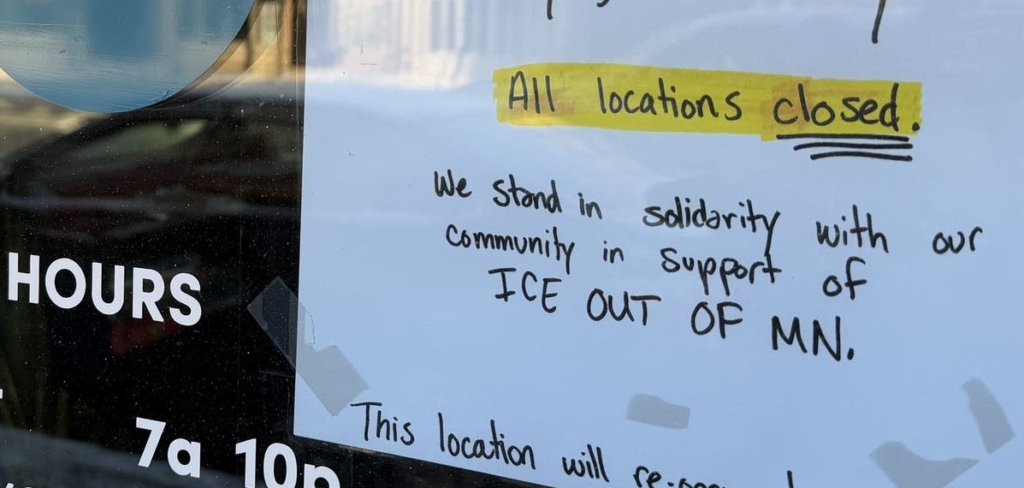 All locations closed.
We stand in solidarity with our
community in support of
ICE OUT OF MN.
This location will
HOURS
7a 10p